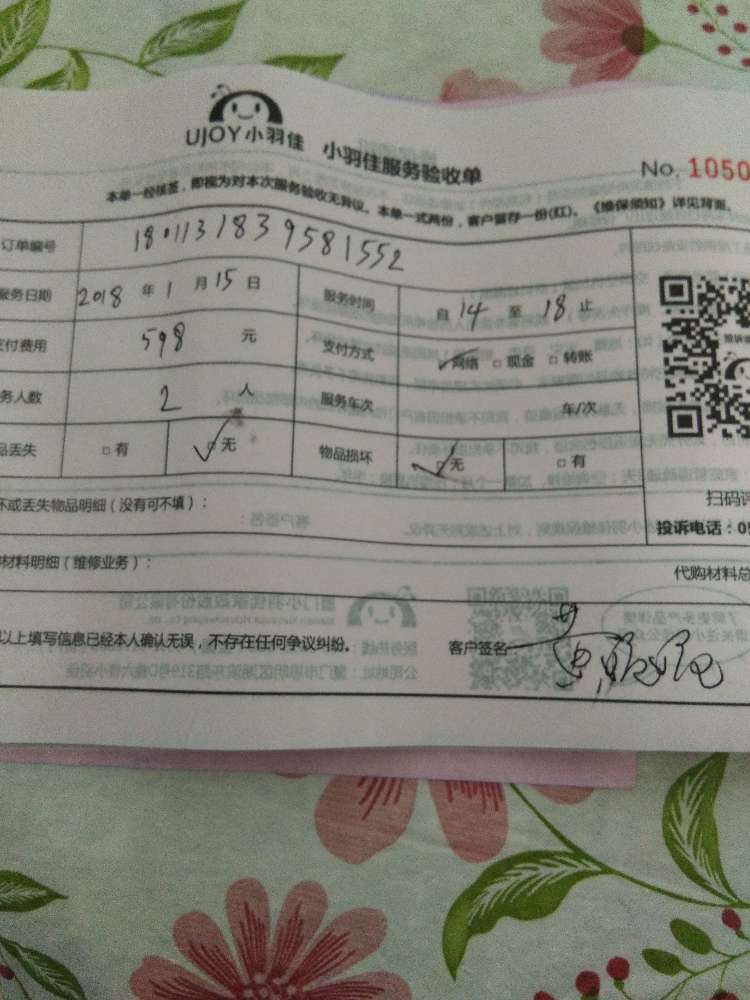 UJOY小羽佳 小羽佳服务验收单
No. 1050
本单一经接签，即视为对本次服务验收无异议。本单一式两份，客户留存一份(红)。《维保须知》详见背面。
订单编号 1801131839581552
服务日期 2018 年 1 月 15 日 服务时间 自 14 至 18 止
支付费用 598 元 支付方式 网络 □ 现金 □ 转账
务人数 2 人 服务车次 车/次
品丢失 □ 有 □ 无 物品损坏 □ 无 □ 有
坏或丢失物品明细（没有可不填）：
扫码评
投诉电话：05
材料明细（维修业务）：
代购材料总
以上填写信息已经本人确认无误，不存在任何争议纠纷。 客户签名